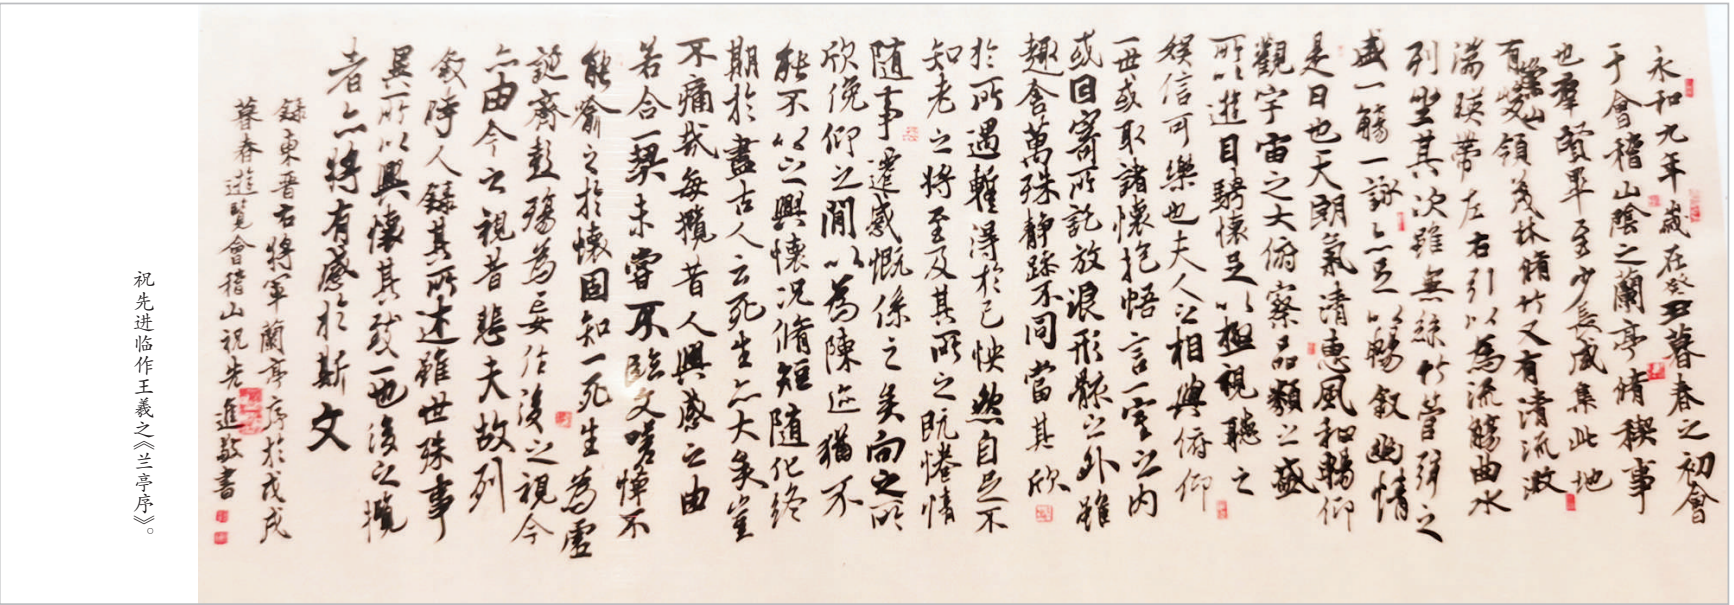 永和九年歲在癸丑暮春之初會
于會稽山陰之蘭亭脩稧事
也羣賢畢至少長咸集此地
有崇山峻領茂林脩竹又有清流激
湍暎帶左右引以為流觴曲水
列坐其次雖無絲竹管弦之
盛一觴一詠亦足以暢敘幽情
是日也天朗氣清惠風和暢仰
觀宇宙之大俯察品類之盛
所以遊目騁懷足以極視聽之
娛信可樂也夫人之相與俯仰
一世或取諸懷抱悟言一室之內
或因寄所託放浪形骸之外雖
趣舍萬殊靜躁不同當其欣
於所遇暫得於己怏然自足不
知老之將至及其所之既惓情
隨事遷感慨係之矣向之所
欣俛仰之間以為陳迹猶不
能不以之興懷況脩短隨化終
期於盡古人云死生亦大矣豈
不痛哉每攬昔人興感之由
若合一契未甞不臨文嗟悼不
能喻之於懷固知一死生為虛
誕齊彭殤為妄作後之視今
亦由今之視昔悲夫故列
敘時人錄其所述雖世殊事
異所以興懷其致一也後之攬
者亦將有感於斯文
錄東晉右將軍蘭亭序於戊戌
暮春遊覽會稽山祝先進敬書
祝先进临作王羲之《兰亭序》。